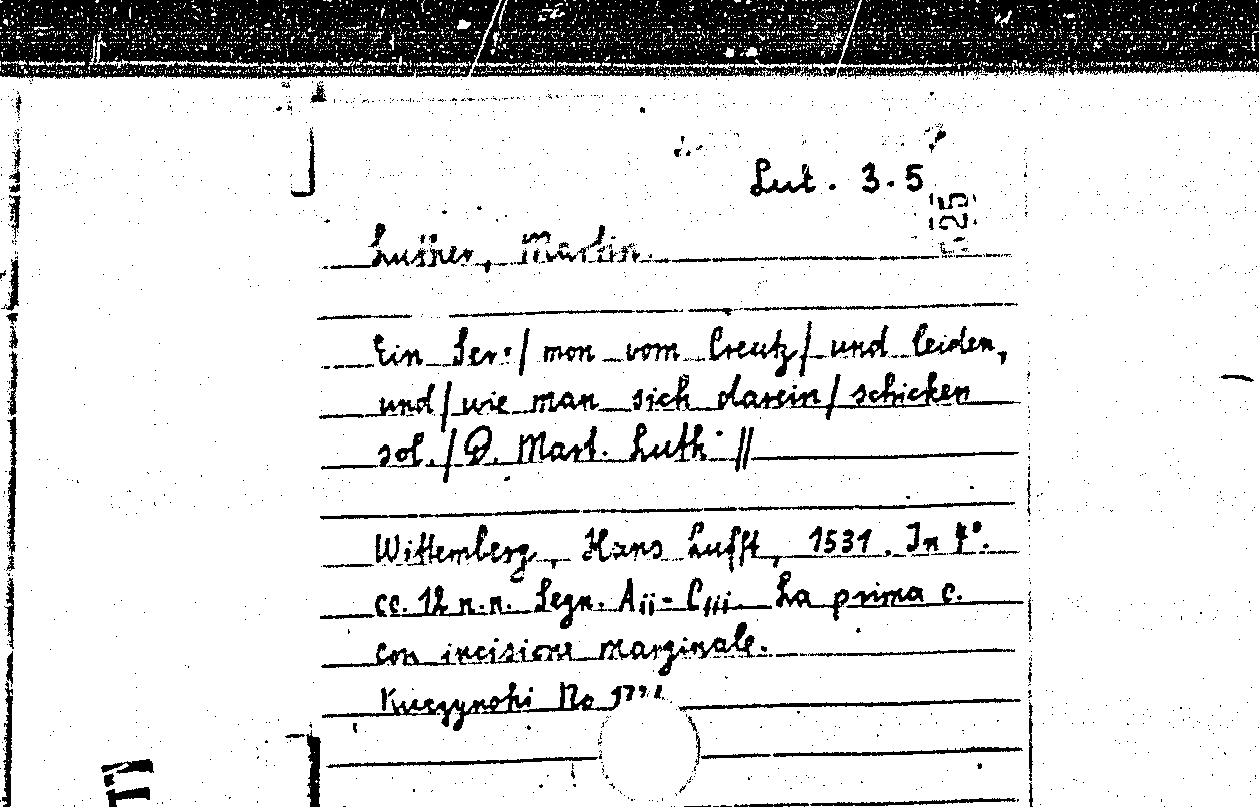 Lut. 3.5
Luther, Martin.
Ein Ser-/ mon vom Creutz/ und leiden,
und/ wie man sich darein/ schicken
sol./ D. Mart. Luth. //
Wittemberg, Hans Lufft, 1531. In 4°.
cc. 12 n.n. Segn. Aii- Ciii. La prima c.
con incisione marginale.
Kuczynski No